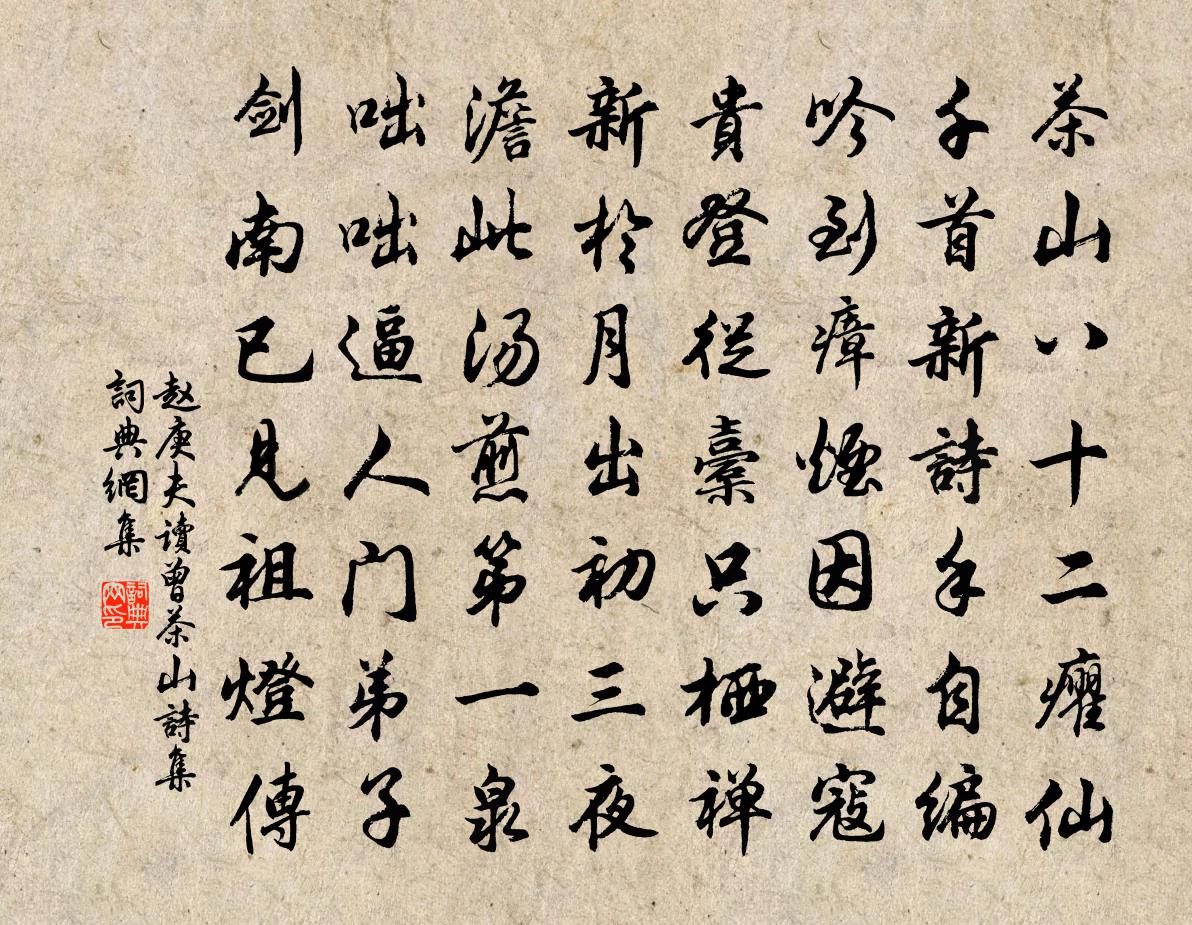 茶山八十二癯仙
千首新詩手自編
吟到瘴煙因避寇
貴登從橐只栖禅
新於月出初三夜
澹此汤煎第一泉
咄咄逼人门弟子
剑南已見祖燈傳
赵庚夫讀曾茶山詩集
詞典網集
詞典网印